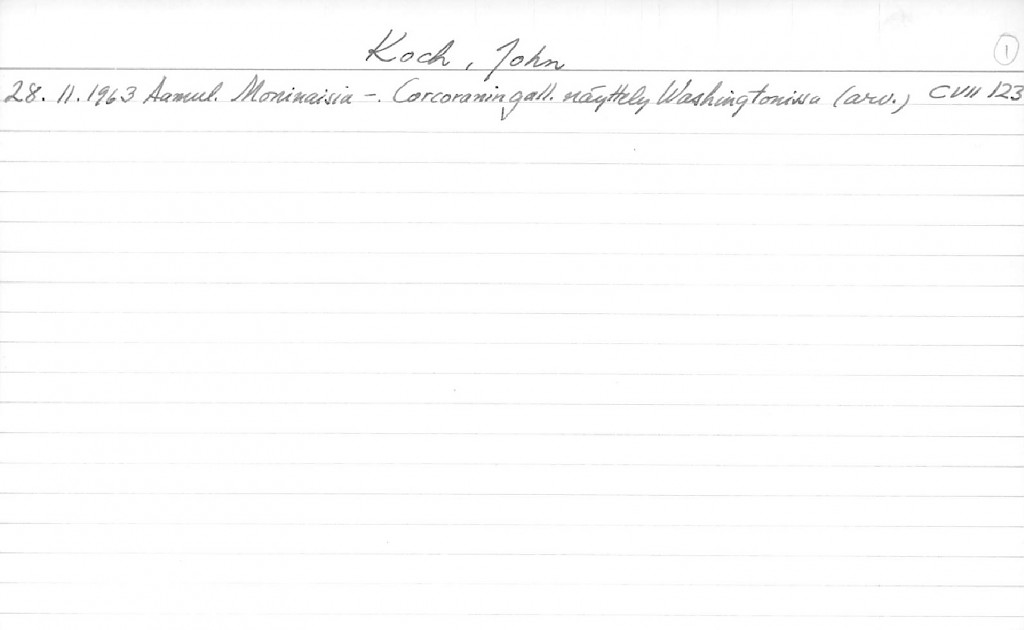 Koch, John
1
28. 11. 1963 Aamul. Moninaisia -. Corcoranin gall. näyttely Washingtonissa (arv.) CVII 123